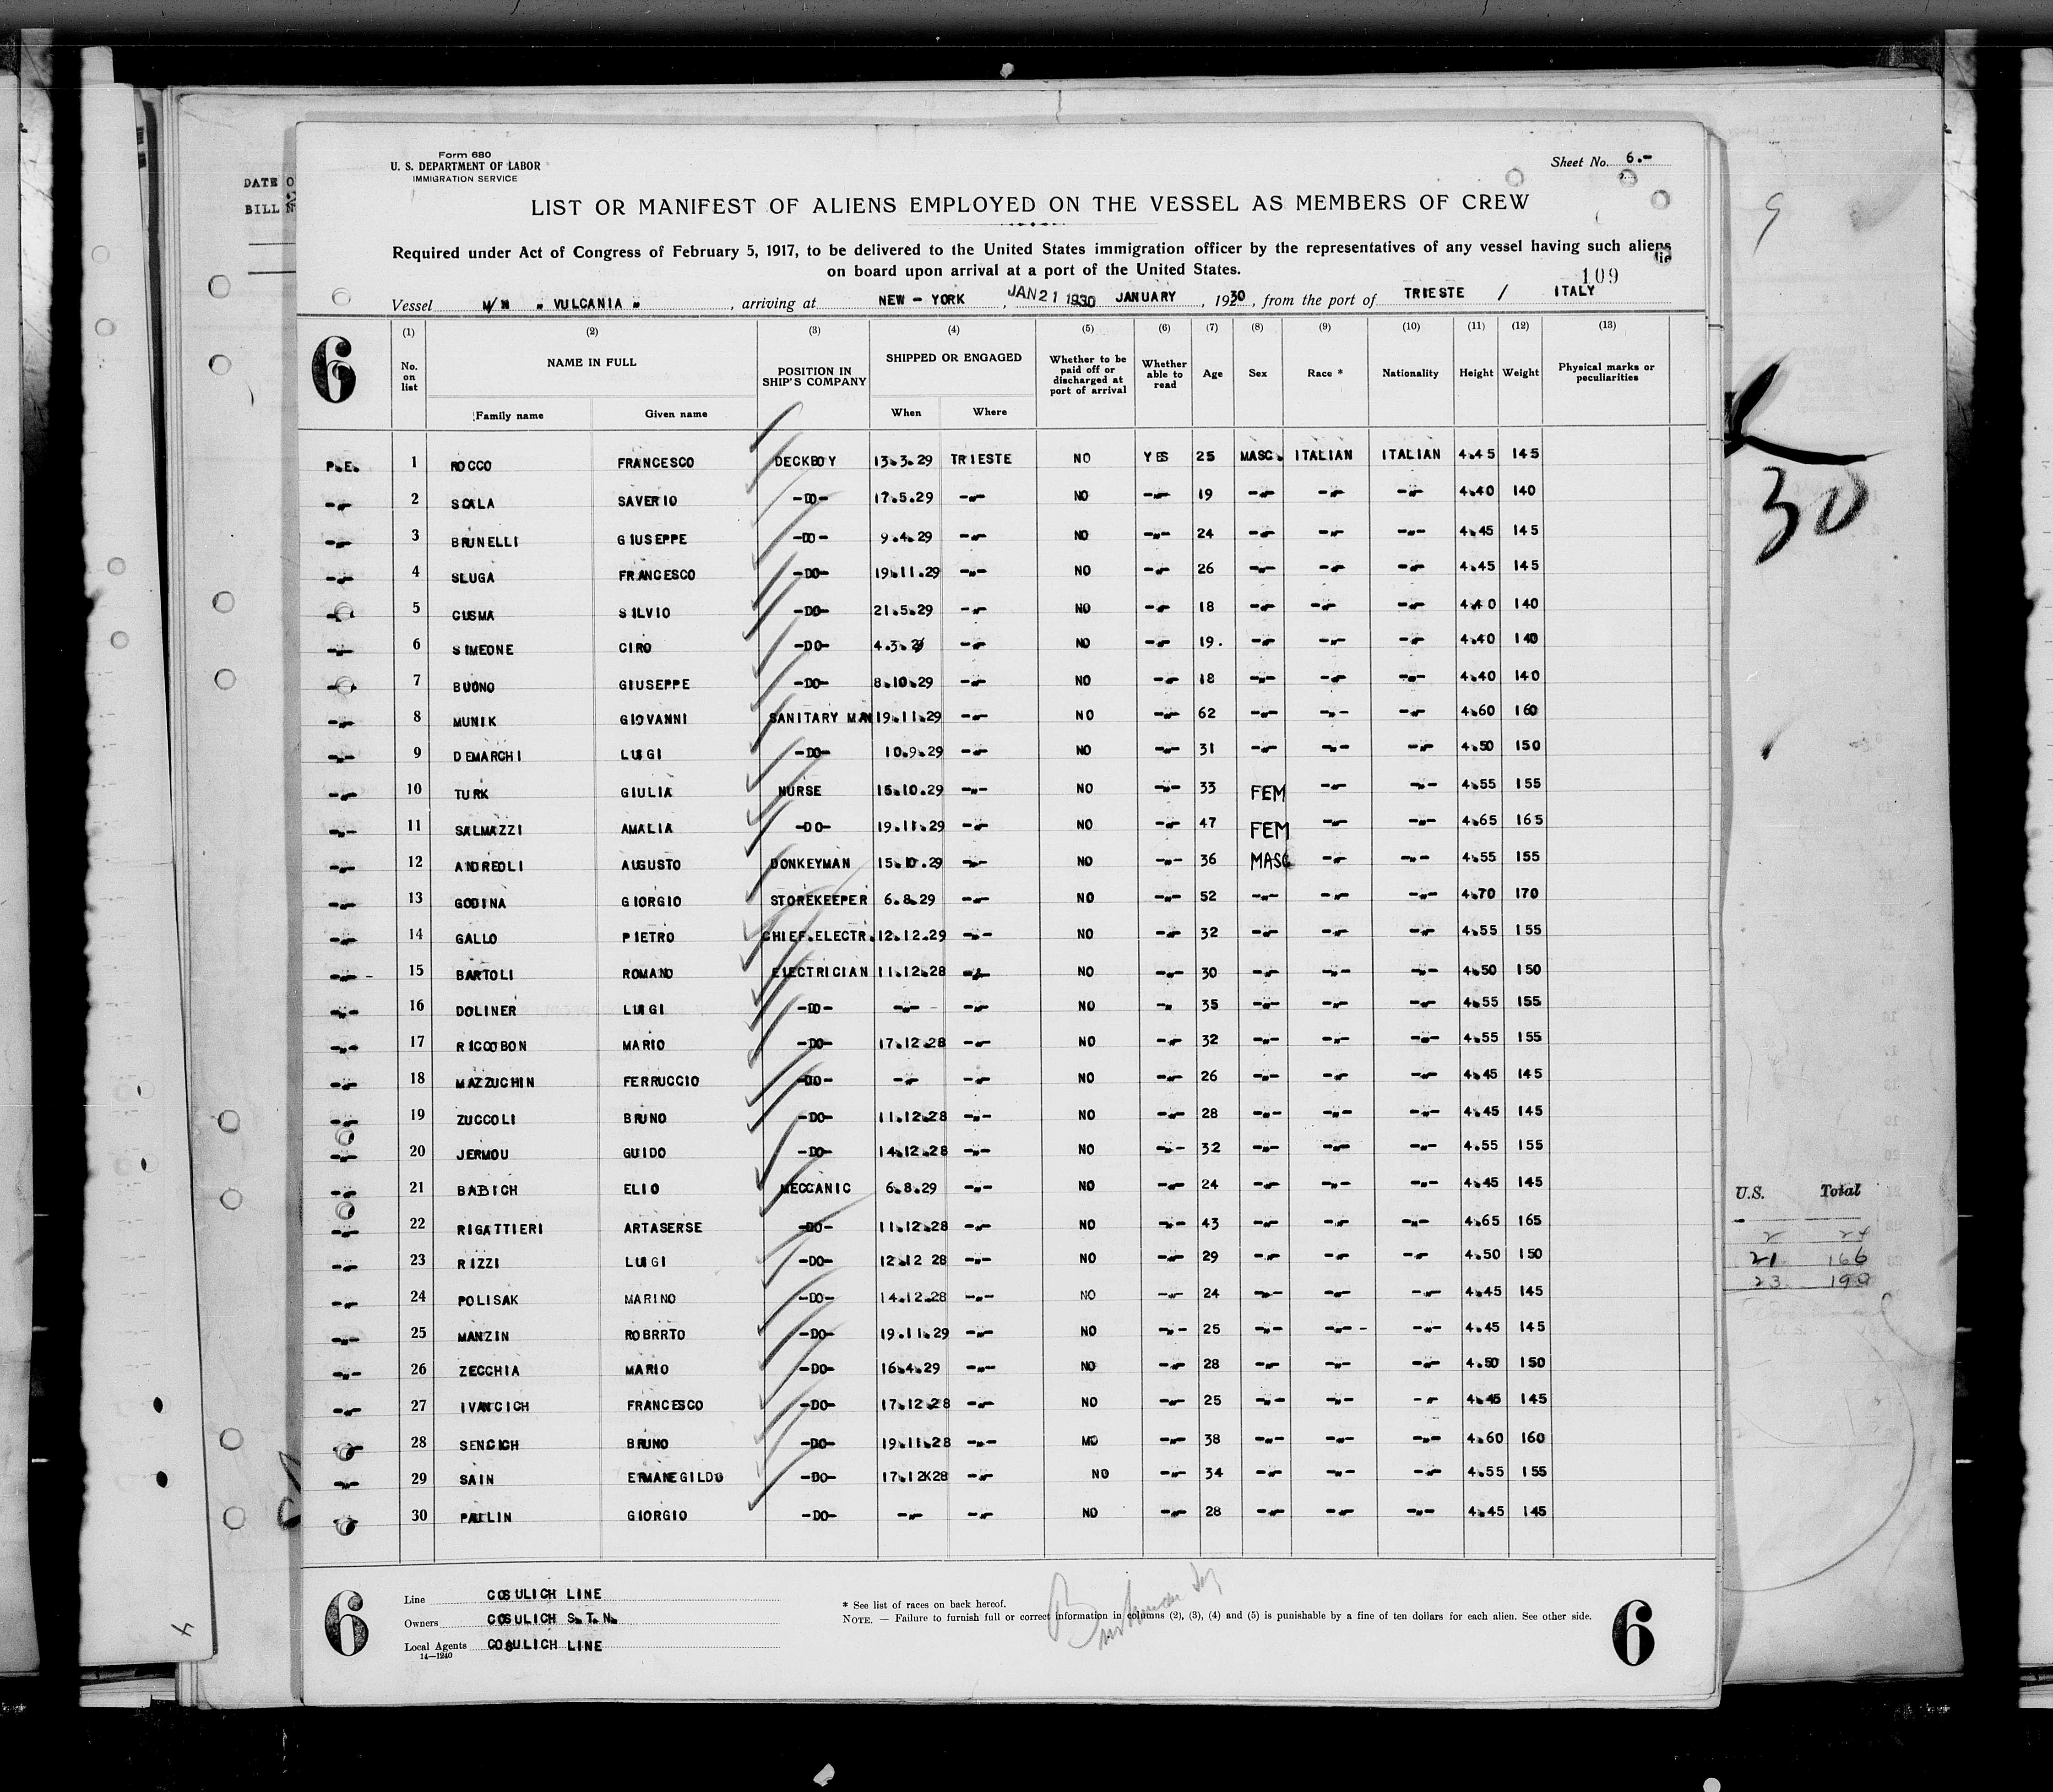 DATE O
BILL N
Form 680
U. S. DEPARTMENT OF LABOR
IMMIGRATION SERVICE
Sheet No. 6.-
LIST OR MANIFEST OF ALIENS EMPLOYED ON THE VESSEL AS MEMBERS OF CREW
Required under Act of Congress of February 5, 1917, to be delivered to the United States immigration officer by the representatives of any vessel having such aliens
on board upon arrival at a port of the United States.
109
Vessel M/N " VULCANIA " , arriving at NEW - YORK , JAN 21 1930 JANUARY , 1930 , from the port of TRIESTE / ITALY
6
(1) (2) (3) (4) (5) (6) (7) (8) (9) (10) (11) (12) (13)
No. on list NAME IN FULL Family name Given name POSITION IN SHIP'S COMPANY SHIPPED OR ENGAGED When Where Whether to be paid off or discharged at port of arrival Whether able to read Age Sex Race * Nationality Height Weight Physical marks or peculiarities
P.E. 1 ROCCO FRANCESCO DECKBOY 13.3.29 TRIESTE NO YES 25 MASC. ITALIAN ITALIAN 4.45 145
-"- 2 SCALA SAVERIO -DO- 17.5.29 -"- NO -"- 19 -"- -"- -"- 4.40 140
-"- 3 BRUNELLI GIUSEPPE -DO- 9.4.29 -"- NO -"- 24 -"- -"- -"- 4.45 145
-"- 4 SLUGA FRANCESCO -DO- 19.11.29 -"- NO -"- 26 -"- -"- -"- 4.45 145
-"- 5 CUSMA SILVIO -DO- 21.5.29 -"- NO -"- 18 -"- -"- -"- 4.40 140
-"- 6 SIMEONE CIRO -DO- 4.3.29 -"- NO -"- 19. -"- -"- -"- 4.40 140
-"- 7 BUONO GIUSEPPE -DO- 8.10.29 -"- NO -"- 18 -"- -"- -"- 4.40 140
-"- 8 MUNIK GIOVANNI SANITARY MAN 19.11.29 -"- NO -"- 62 -"- -"- -"- 4.60 160
-"- 9 DEMARCHI LUIGI -DO- 10.9.29 -"- NO -"- 31 -"- -"- -"- 4.50 150
-"- 10 TURK GIULIA NURSE 15.10.29 -"- NO -"- 33 FEM -"- -"- 4.55 155
-"- 11 SALMAZZI AMALIA -DO- 19.11.29 -"- NO -"- 47 FEM -"- -"- 4.65 165
-"- 12 ANDREOLI AUGUSTO DONKEYMAN 15.10.29 -"- NO -"- 36 MASC -"- -"- 4.55 155
-"- 13 GODINA GIORGIO STOREKEEPER 6.8.29 -"- NO -"- 52 -"- -"- -"- 4.70 170
-"- 14 GALLO PIETRO CHIEF.ELECTR. 12.12.29 -"- NO -"- 32 -"- -"- -"- 4.55 155
-"- 15 BARTOLI ROMANO ELECTRICIAN 11.12.28 -"- NO -"- 30 -"- -"- -"- 4.50 150
-"- 16 DOLINER LUIGI -DO- -"- -"- NO -"- 35 -"- -"- -"- 4.55 155
-"- 17 RICCOBON MARIO -DO- 17.12.28 -"- NO -"- 32 -"- -"- -"- 4.55 155
-"- 18 MAZZUCHIN FERRUCCIO -DO- -"- -"- NO -"- 26 -"- -"- -"- 4.45 145
-"- 19 ZUCCOLI BRUNO -DO- 11.12.28 -"- NO -"- 28 -"- -"- -"- 4.45 145
-"- 20 JERMOU GUIDO -DO- 14.12.28 -"- NO -"- 32 -"- -"- -"- 4.55 155
-"- 21 BABICH ELIO MECCANIC 6.8.29 -"- NO -"- 24 -"- -"- -"- 4.45 145
-"- 22 RIGATTIERI ARTASERSE -DO- 11.12.28 -"- NO -"- 43 -"- -"- -"- 4.65 165
-"- 23 RIZZI LUIGI -DO- 12.12 28 -"- NO -"- 29 -"- -"- -"- 4.50 150
-"- 24 POLISAK MARINO -DO- 14.12.28 -"- NO -"- 24 -"- -"- -"- 4.45 145
-"- 25 MANZIN ROBRRTO -DO- 19.11.29 -"- NO -"- 25 -"- -"- -"- 4.45 145
-"- 26 ZECCHIA MARIO -DO- 16.4.29 -"- NO -"- 28 -"- -"- -"- 4.50 150
-"- 27 IVANCICH FRANCESCO -DO- 17.12.28 -"- NO -"- 25 -"- -"- -"- 4.45 145
-"- 28 SENCICH BRUNO -DO- 19.11.28 -"- NO -"- 38 -"- -"- -"- 4.60 160
-"- 29 SAIN ERMANEGILDO -DO- 17.12X28 -"- NO -"- 34 -"- -"- -"- 4.55 155
-"- 30 PAULIN GIORGIO -DO- -"- -"- NO -"- 28 -"- -"- -"- 4.45 145
6
Line COSULICH LINE
Owners COSULICH S.T.N.
Local Agents COSULICH LINE
14—1240
* See list of races on back hereof.
NOTE. — Failure to furnish full or correct information in columns (2), (3), (4) and (5) is punishable by a fine of ten dollars for each alien. See other side.
6
30
U.S. Total
2 24
21 166
23 190